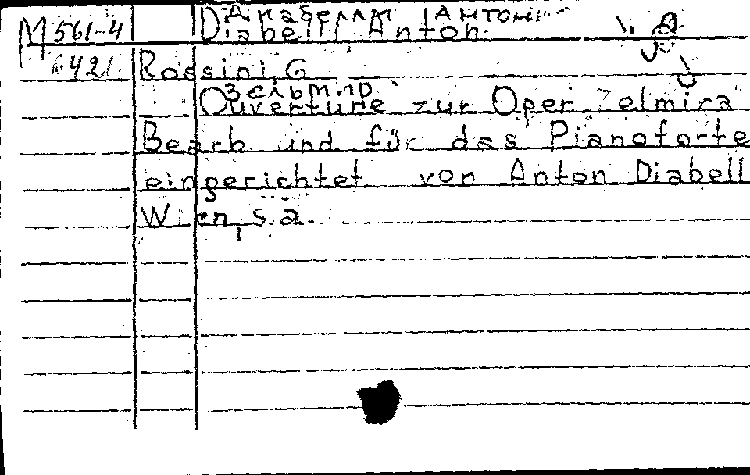 Диабелли Антон
М 561-4 Diabelli Anton
6421 Rossini, G.
Зельмира
Ouverture zur Oper Zelmira
Bearb und für das Pianoforte
eingerichtet von Anton Diabell
Wien, s.a.